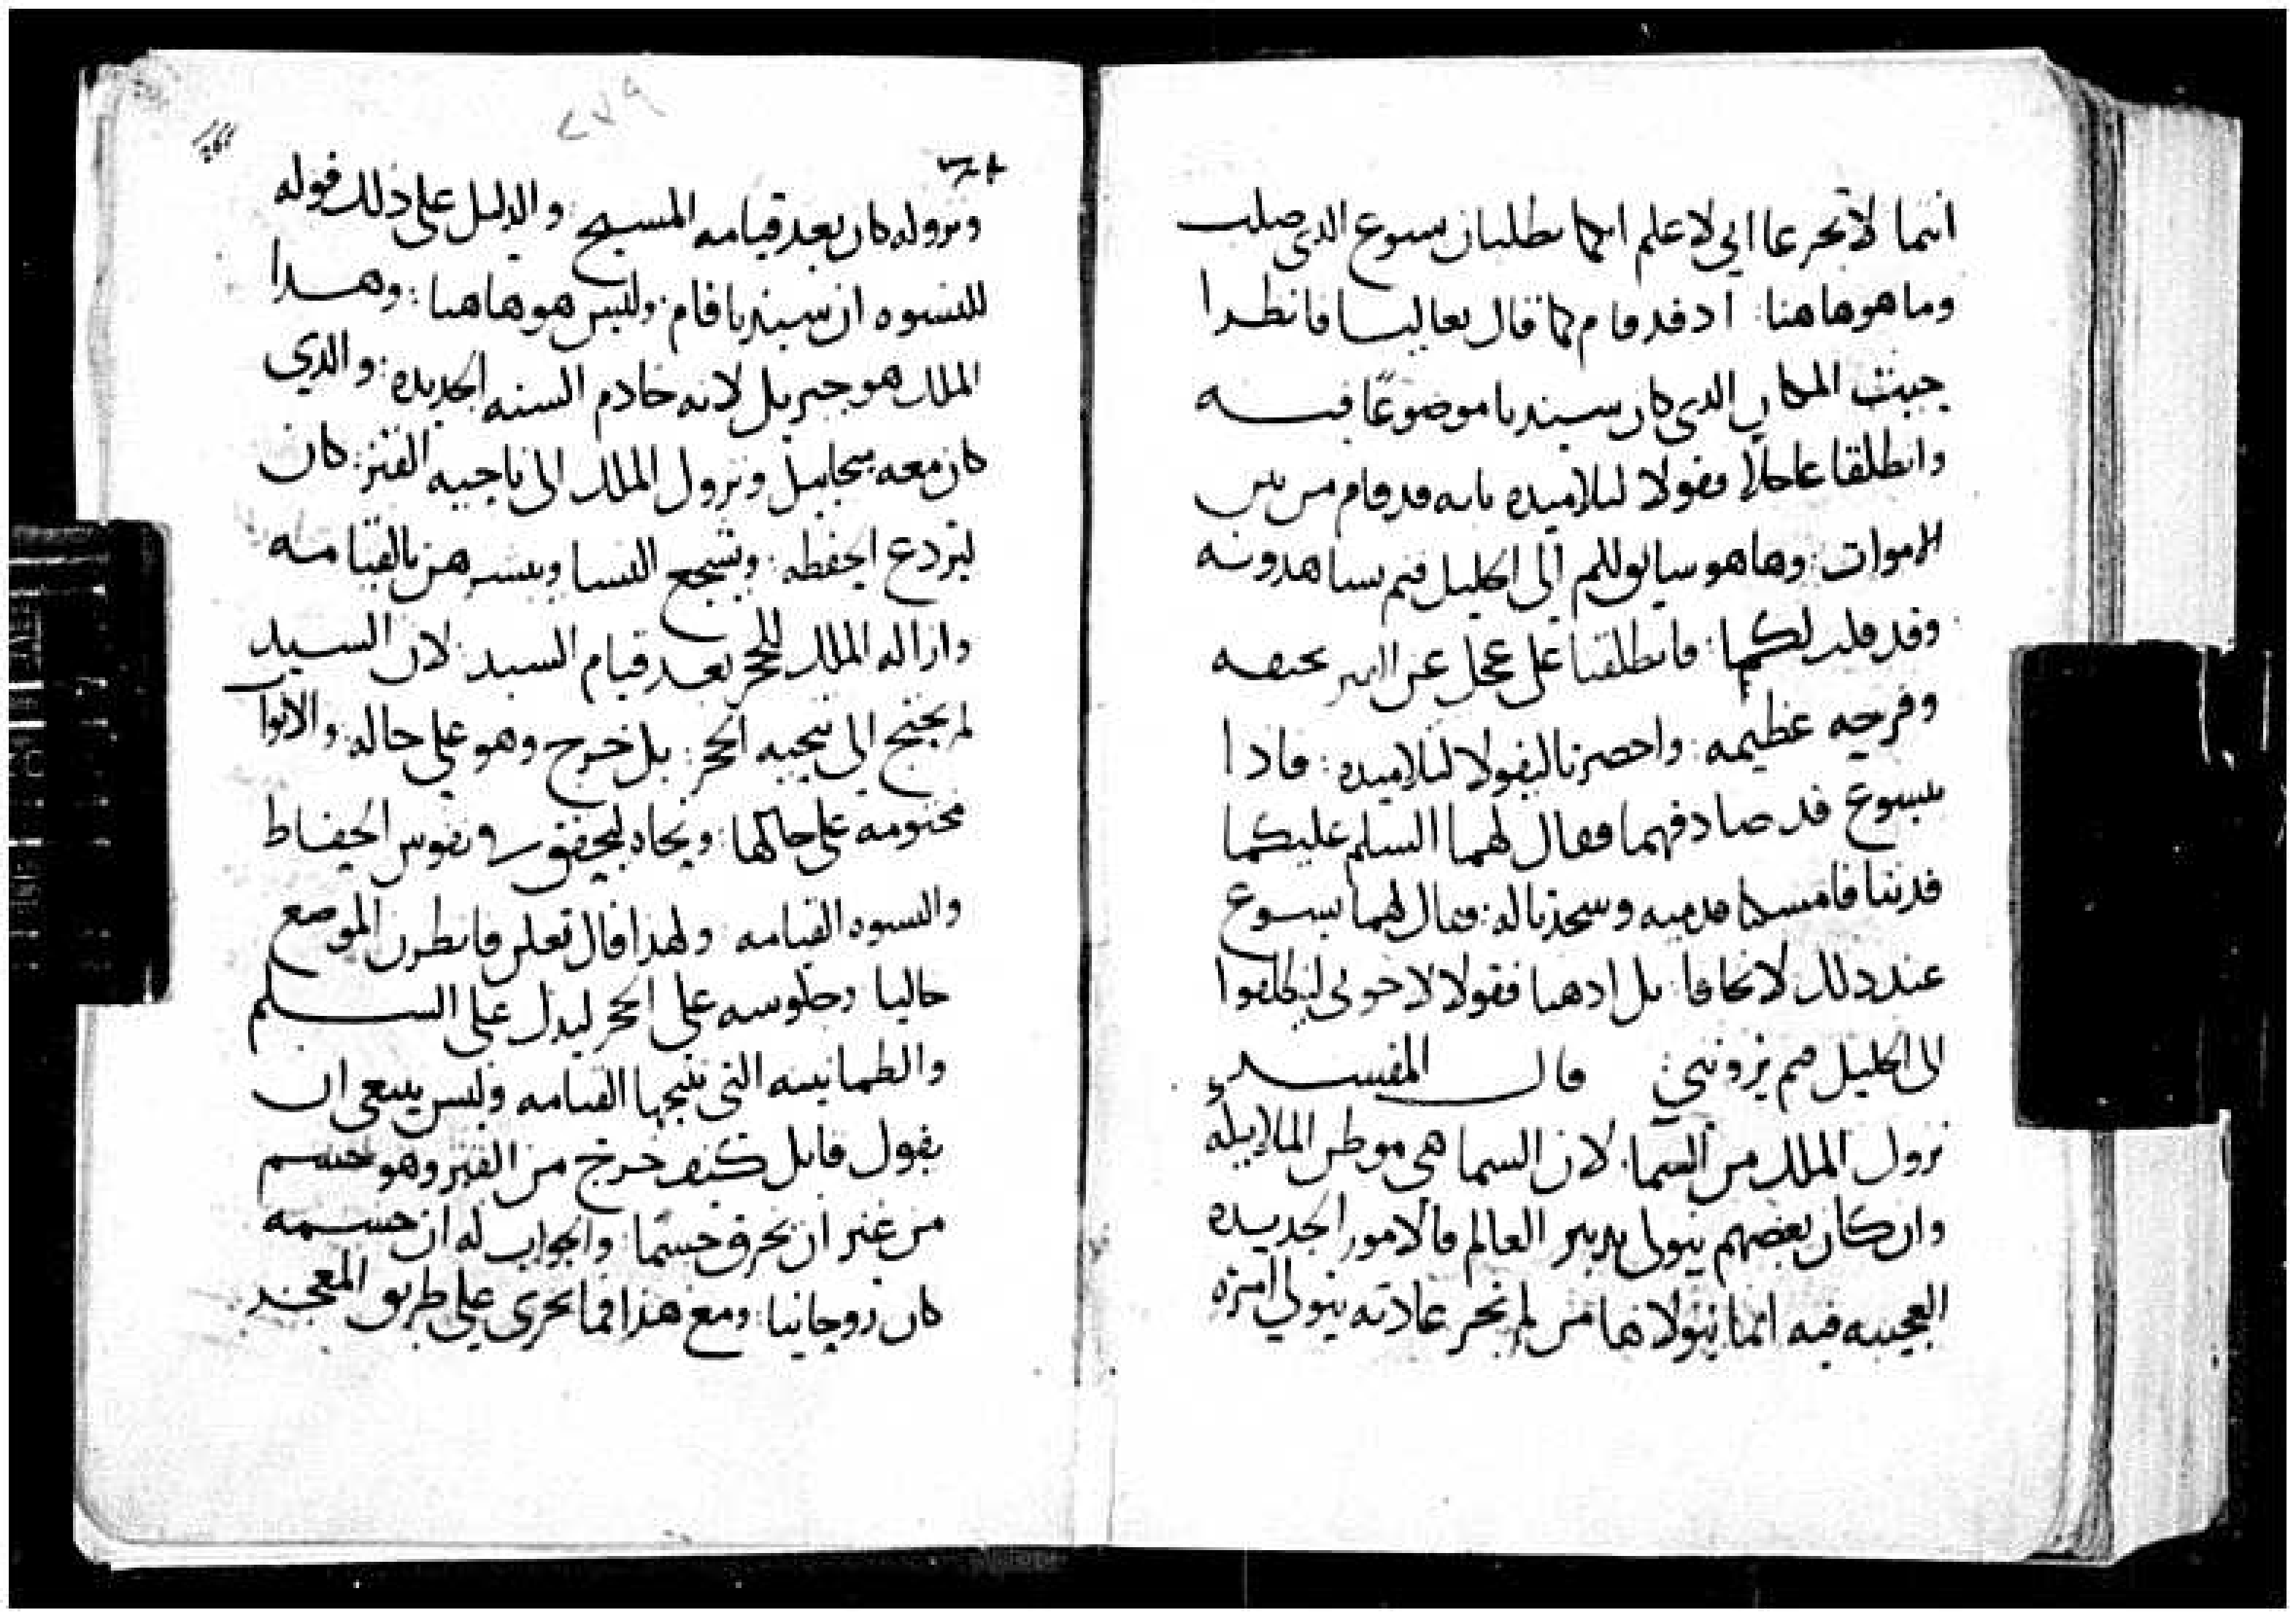 انتما لا تجزعا اني لاعلم انكما تطلبان يسوع الذي صلب
وما هو هاهنا : اذ قد قام كما قال تعاليا فانظرا
حيث المكان الذي كان سيدنا موضوعًا فيه
وانطلقا عاجلا فقولا لتلاميذه بانه قد قام من بين
الاموات : وها هو سابق لكم الى الجليل فثم تشاهدونه
وقد قلت لكما : فانطلقتا على عجل عن القبر بخيفه
وفرحه عظيمه : واحضرتا ليقولا لتلاميذه : فاذا
يسوع قد صادفهما فقال لهما السلم عليكما
فدنتا فامسكتا قدميه وسجدتا له : فقال لهما يسوع
عند ذلك لا تخافا : بل اذهبا فقولا لاخوتي لينطلقوا
الى الجليل فثم يرونني : قال المفسر
نزول الملك من السما : لان السما هي موطن الملايكه
وان كان بعضهم يتولى تدبير العالم فالامور الجديده
العجيبه فيه انما يتولاها من لم تجر عادته بتولي امره
٢٧٩
ونزوله كان بعد قيامه المسيح : والدليل على ذلك قوله
للنسوه ان سيدنا قام : وليس هو هاهنا : وهذا
الملك هو جبريل لانه خادم السنه الجديده : والذي
كان معه ميخاييل ونزول الملك الى ناحيه القبر : كان
ليردع الحفظه : ويشجع النسا ويبشرهن بالقيامه
وازاله الملك للحجر بعد قيام السيد : لان السيد
لم يحتج الى تنحيه الحجر : بل خرج وهو على حاله : والابوا
مختومه على حالها : ونحاه ليحقق في نفوس الحفاظ
والنسوه القيامه : ولهذا قال تعلن فانظرن الموضع
خاليا : وجلوسه على الحجر ليدل على السلم
والطمانينه التي نتيجها القيامه وليس ينبغي ان
يقول قايل كيف خرج من القبر وهو جسم
من غير ان يخرق جسمًا : والجواب له ان جسمه
كان روحانيا : ومع هذا فما يجري على طريق المعجز